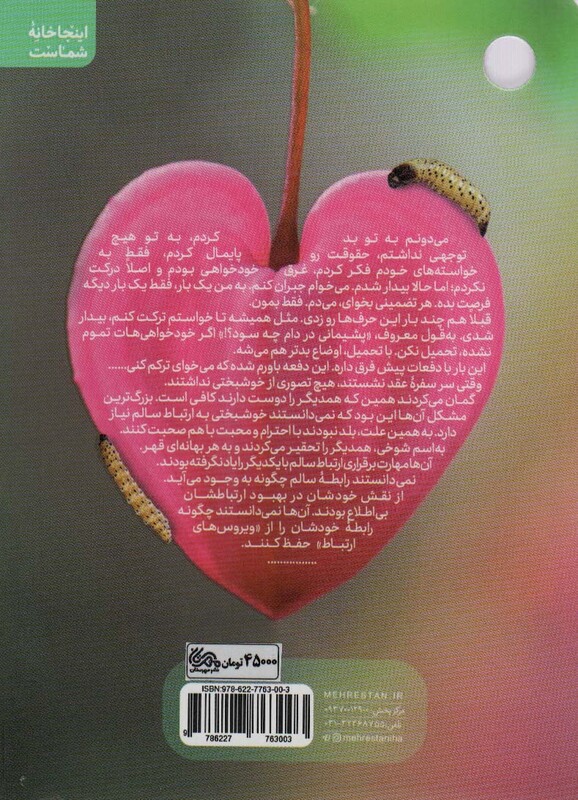 اینجا خانهٔ
شماست
می‌دونم به تو بد کردم، به تو هیچ
توجهی نداشتم، حقوقت رو پایمال کردم، فقط به
خواسته‌های خودم فکر کردم، غرق خودخواهی بودم و اصلاً درکت
نکردم؛ اما حالا بیدار شدم. می‌خوام جبران کنم. به من یک بار، فقط یک بار دیگه
فرصت بده. هر تضمینی بخوای، می‌دم. فقط بمون.
قبلاً هم چند بار این حرف‌ها رو زدی. مثل همیشه تا خواستم ترکت کنم، بیدار
شدی. به‌قول معروف، «پشیمانی در دام چه سود؟!» اگر خودخواهی‌هات تموم
نشده، تحمیل نکن. با تحمیل، اوضاع بدتر هم می‌شه.
این بار با دفعات پیش فرق داره. این دفعه باورم شده که می‌خوای ترکم کنی......
وقتی سر سفرهٔ عقد نشستند، هیچ تصوری از خوشبختی نداشتند.
گمان می‌کردند همین که همدیگر را دوست دارند کافی است. بزرگ‌ترین
مشکل آن‌ها این بود که نمی‌دانستند خوشبختی به ارتباط سالم نیاز
دارد. به همین علت، بلد نبودند با احترام و محبت با هم صحبت کنند.
به‌اسم شوخی، همدیگر را تحقیر می‌کردند و به هر بهانه‌ای قهر.
آن‌ها مهارت برقراری ارتباط سالم با یکدیگر را یاد نگرفته بودند.
نمی‌دانستند رابطهٔ سالم چگونه به وجود می‌آید.
از نقش خودشان در بهبود ارتباطشان
بی‌اطلاع بودند. آن‌ها نمی‌دانستند چگونه
رابطهٔ خودشان را از «ویروس‌های
ارتباط» حفظ کنند.
...............
۴۵۰۰۰ تومان
ISBN:978-622-7763-00-3
9 786227 763003
MEHRESTAN.IR
مرکز پخش: ۰۹۳۷۰۰۱۲۹۰۰
تلفن: ۰۳۱-۳۲۲۶۸۷۵۵
mehrestaniha